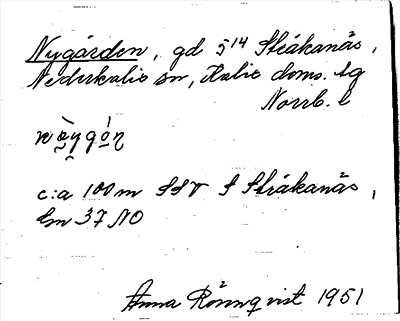 Nygården, gd 5¹⁴ Stråkanäs,
Nederkalix sn, Kalix doms. tg
Norrb. l
c:a 100 m SSV f Stråkanäs,
bm 37 NO
Anna Rönnqvist 1951